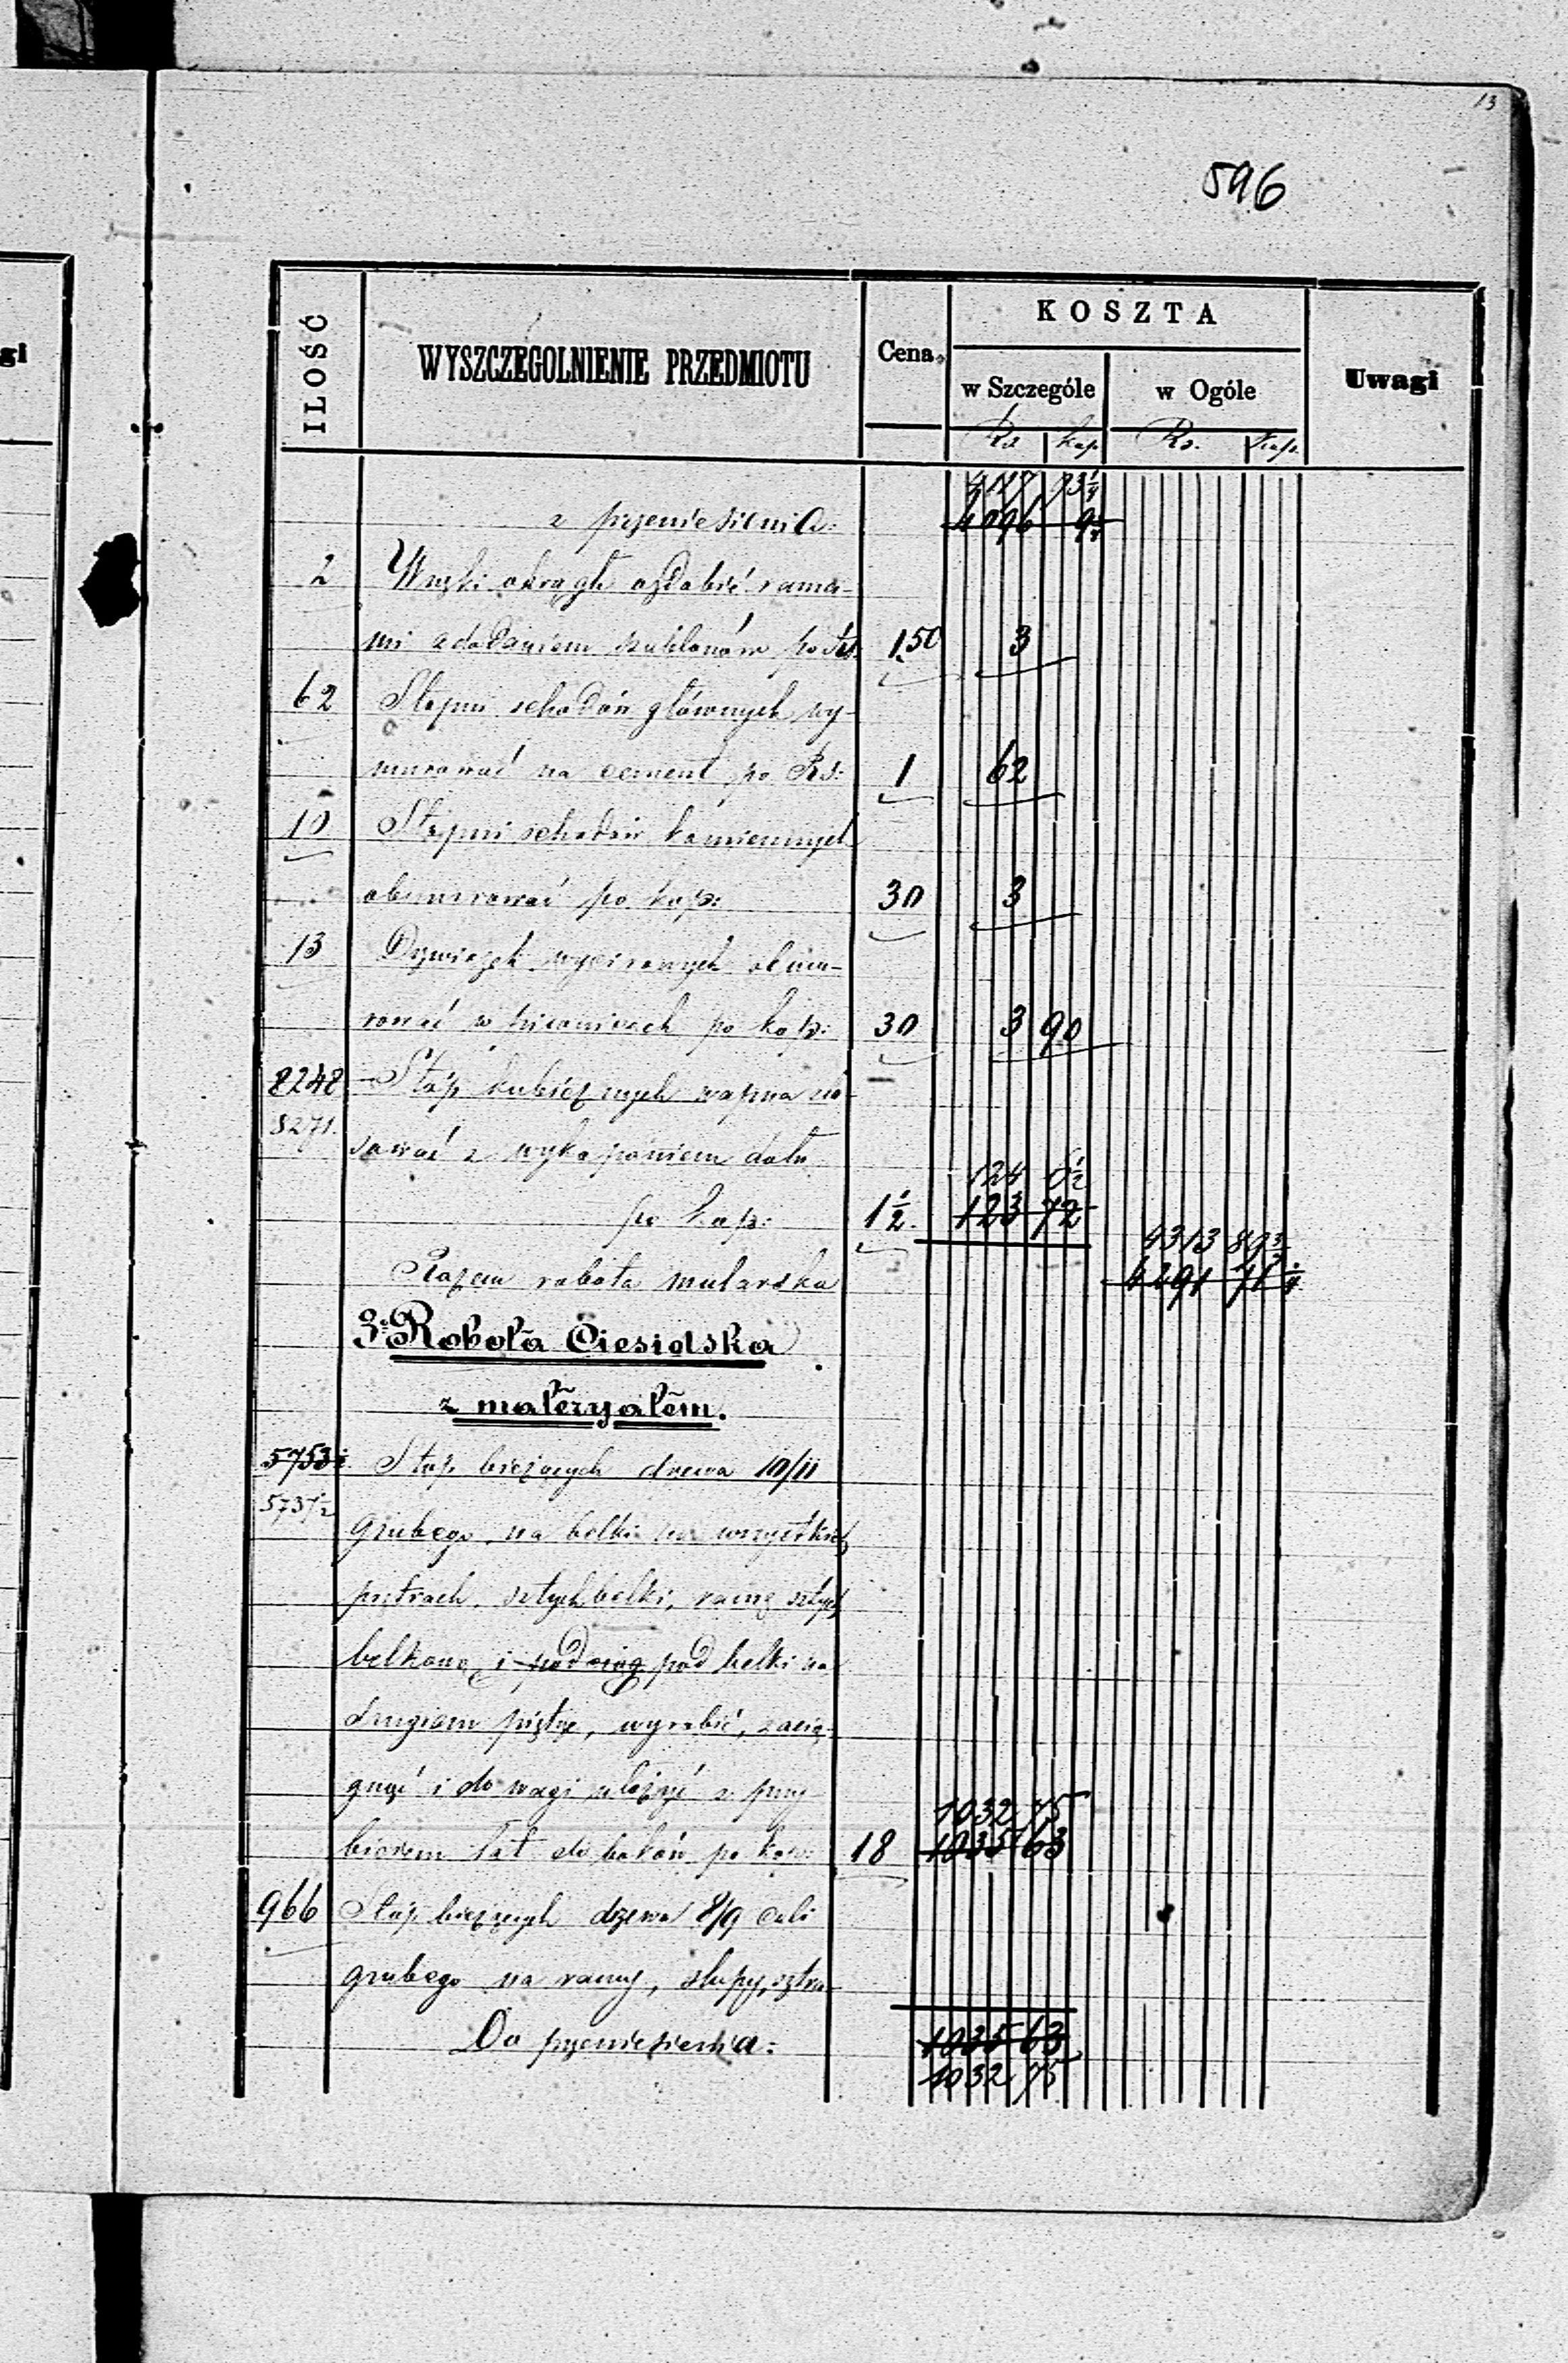 13
596
gi
ILOŚĆ WYSZCZEGÓLNIENIE PRZEDMIOTU Cena KOSZTA Uwagi
w Szczególe w Ogóle
Rs. kop. Rs. kop.
4117 93¼
z przeniesienia: 4096 9¼
2 okrągłe ozdobić rama-
mi z dodaniem szablonów po Rs. 1.50 3
62 Stopni schodów głównych wy-
murować na cement po Rs: 1 62
10 Stopni schodów kamiennych
obmurować po kop: 30 3
13 obmu-
rować w piwnicach po kop: 30 3 90
8248 Stóp kubicznych wapna la-
8271.
sować z wykopaniem dołu
124 6½
po kop: 1½. 123 72
4313 89¾
Razem robota mularska 4291 71¼
3. Robota Ciesielska
z materyałem.
5753½ Stóp bieżących drzewa 10/11
5737½
grubego, na belki na wszystkich
piętrach, sztychbelki, ramę sztych
belkową i podciąg pod belki na
drugiem piętrze, wyrobić, zacią-
gnąć i do wagi ułożyć z przy
1032 75
biciem łat do boków po kop: 18 1035 63
966 Stóp bieżących drzewa 8/9 cali
grubego na ramy, słupy, sztra-
Do przeniesienia: 1035 63
1032 75